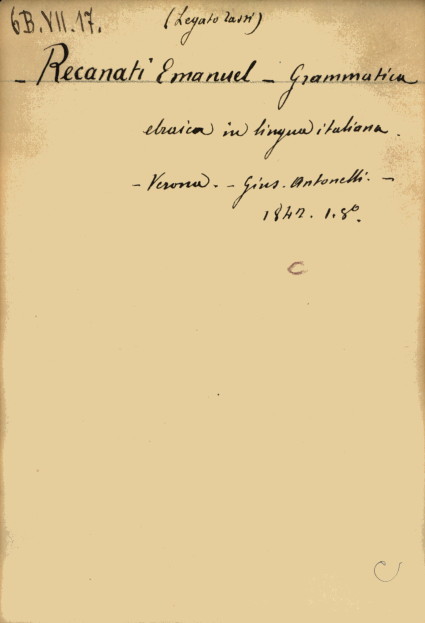 6B.VII.17. (Legato
- Recanati Emanuel - Grammatica
ebraica in lingua italiana.
- Verona. - Gius. Antonelli. -
1842. 1. 8º.
C